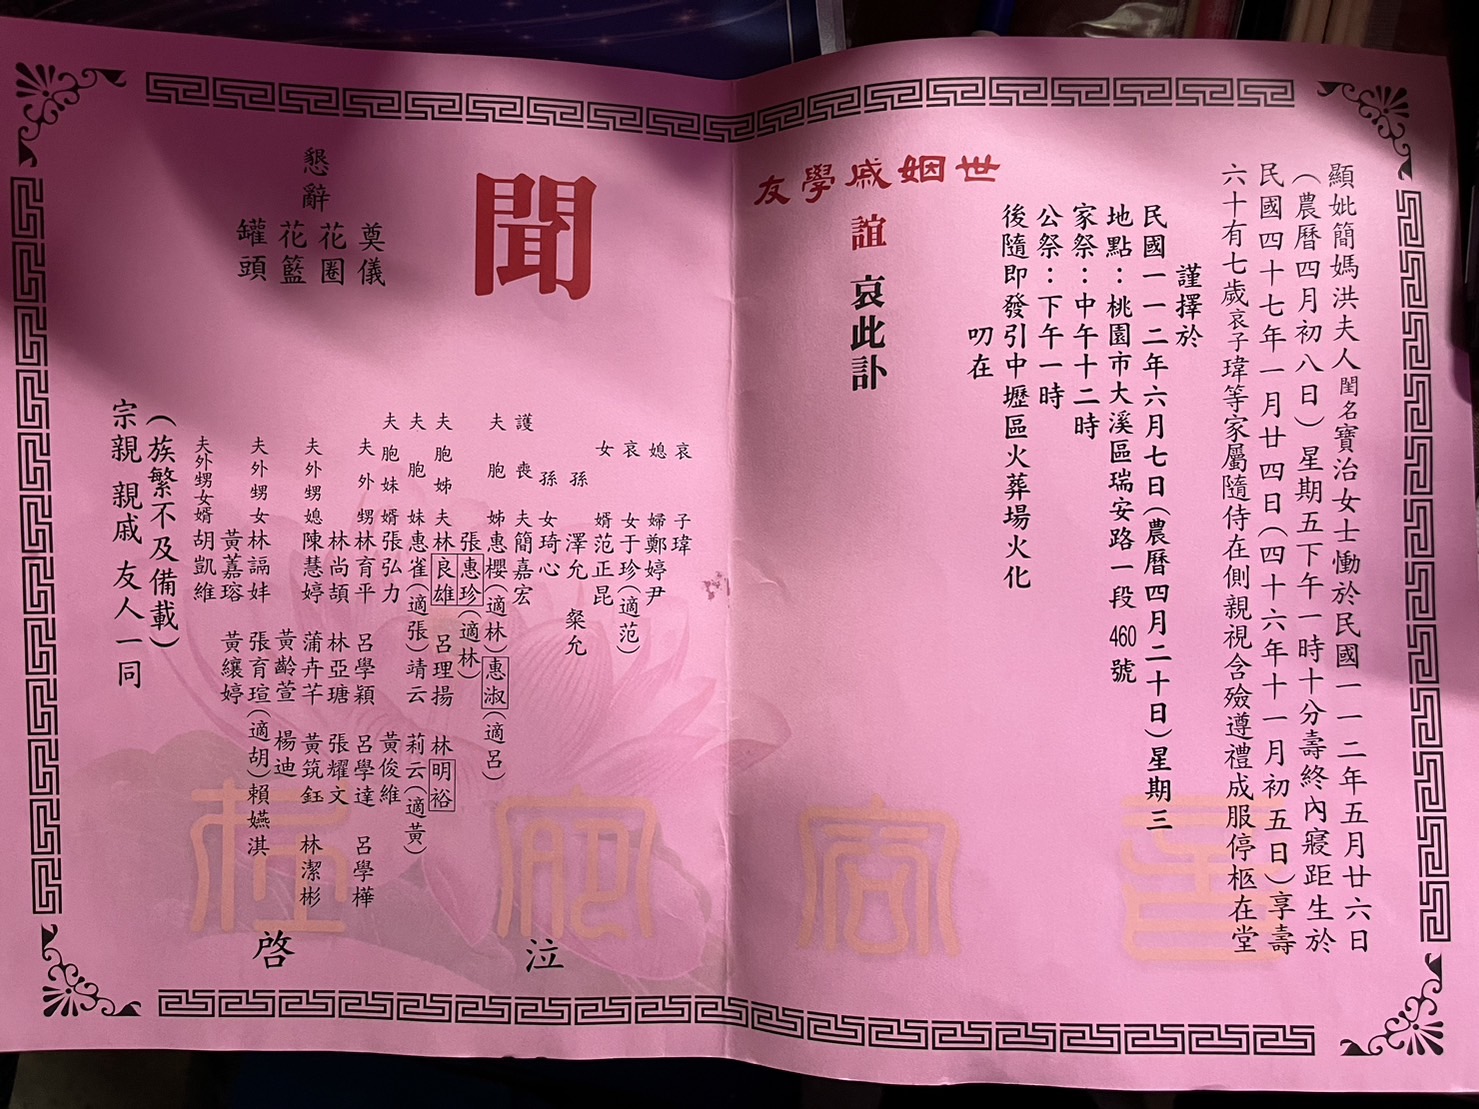 顯妣簡媽洪夫人閨名寶治女士慟於民國一一二年五月廿六日
（農曆四月初八日）星期五下午一時十分壽終內寢距生於
民國四十七年一月廿四日（四十六年十一月初五日）享壽
六十有七歲哀子瑋等家屬隨侍在側親視含殮遵禮成服停柩在堂
謹擇於
民國一一二年六月七日（農曆四月二十日）星期三
地點：桃園市大溪區瑞安路一段460號
家祭：中午十二時
公祭：下午一時
後隨即發引中壢區火葬場火化
叨在
世姻戚學友
誼 哀此訃
聞
懇辭
奠儀
花圈
花籃
罐頭
哀子瑋
媳婦鄭婷尹
哀女于珍（適范）
女婿范正昆
孫澤允 粲允
孫女琦心
護喪夫簡嘉宏
夫胞姊惠櫻（適林）惠淑（適呂）
張惠珍（適林）
夫胞姊夫林良雄 呂理揚 林明裕
夫胞妹惠雀（適張）靖云 莉云（適黃）
夫胞妹婿張弘力 黃俊維
夫外甥林育平 呂學穎 呂學達 呂學樺
林尚頡 林亞瑭 張耀文
夫外甥媳陳慧婷 蒲卉芊 黃筑鈺 林潔彬
黃齡萱 楊迪
夫外甥女林諨妦 張育瑄（適胡）賴嬿淇
黃嘉瑢 黃纕婷
夫外甥女婿胡凱維
（族繁不及備載）
宗親 親戚 友人一同
泣
啓